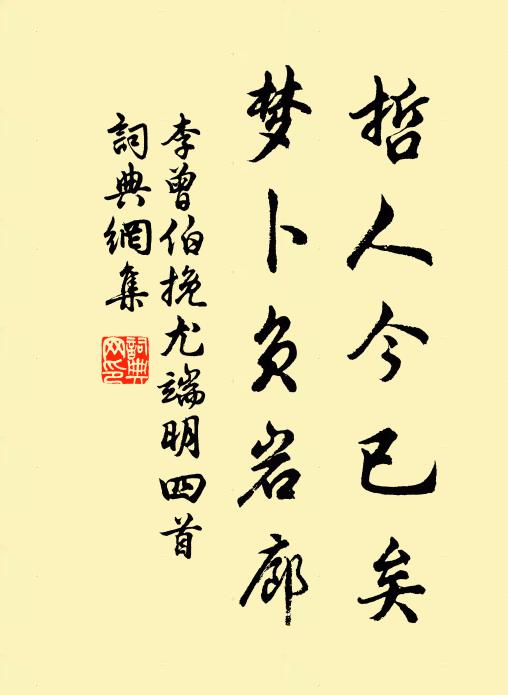 哲人今已矣
梦卜负岩廊
李曾伯挽尤端明四首
詞典網集
詞典网印